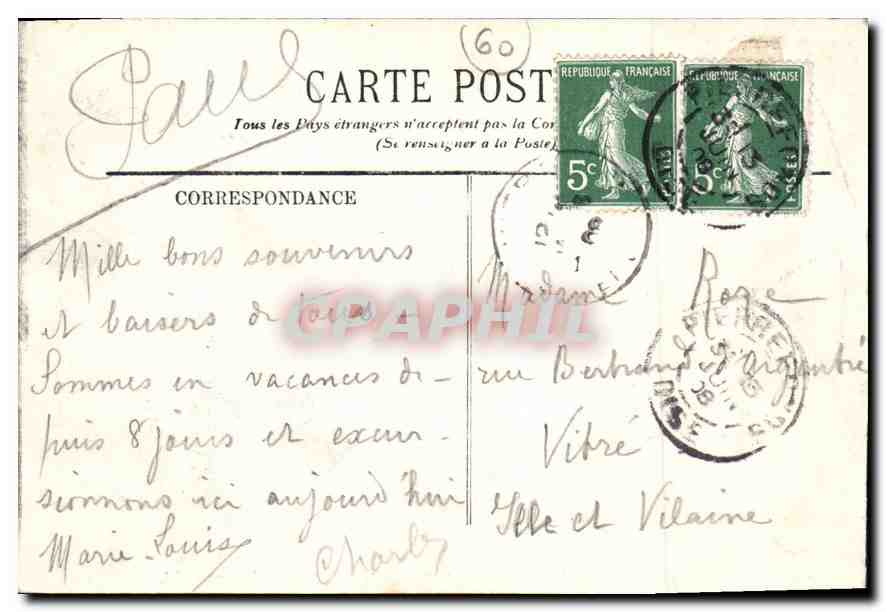 Paul
60
CARTE POST
Tous les Pays étrangers n'acceptent pas la Cor
(Se renseigner à la Poste)
REPUBLIQUE FRANÇAISE
5c
REPUBLIQUE FRANÇAISE
5c
POSTES
CORRESPONDANCE
Mille bons souvenirs
et baisers de tous -
Sommes en vacances de-
puis 8 jours et excur-
sionnons ici aujourd'hui
Marie-Louis
Charles
Madame Roze
rue Bertrand d'Argentré
Vitré
Ille et Vilaine
PIERREFONDS
OISE
JUIN
08
CPAPHIL